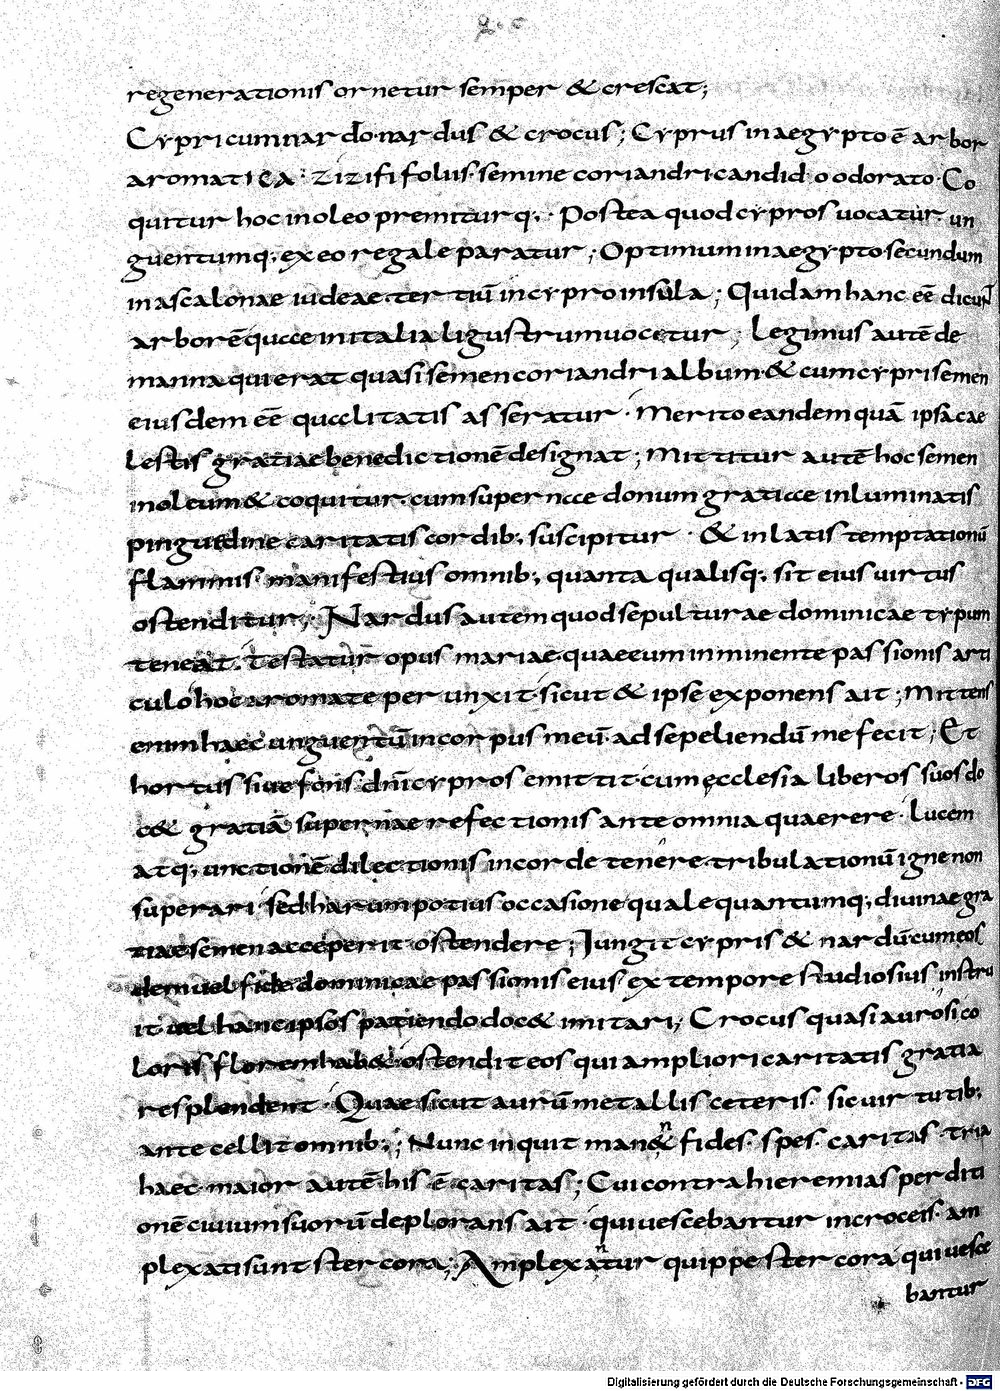 regenerationis ornetur semper & crescat;
Cypri cum nardo· nardus & crocus; Cyprus in aegypto ē arbor
aromatica· zizifi folus· semine coriandri candido odorato· Co
quitur hoc in oleo premiturq;· Postea quod cypros uocatur· un
guentumq; ex eo regale paratur; Optimum in aegypto secundum
in ascalonae iudeae tertiū in cypro insula; Quidam hanc eē dicunt
arborē quae in italia ligustrum uocetur; Legimus autē de
manna qui erat quasi semen coriandri album & cum cypri semen
eiusdem eē qualitatis asseratur· Merito eandem quā ipsa cae
lestis gratiae benedictionē designat; Mittitur autē hoc semen
in oleum & coquitur· cum supernae donum gratiae inluminatis
pinguedine caritatis cordib; suscipitur· & inlatis temptationū
flammis· manifestius omnib; quanta qualisq; sit eius uirtus
ostenditur; Nardus autem quod sepulturae dominicae typum
teneat· Testatur opus mariae quae eum inminente passionis arti
culo hoc aromate perunxit· sicut & ipse exponens ait; Mittens
enim haec unguentū in corpus meū· ad sepeliendū me fecit; Et
hortus siue fons dn̄i cypros emittit· cum ęcclesia liberos suos do
c& gratiā supernae refectionis ante omnia quaerere· Lucem
atq; unctionē dilectionis in corde tenere· tribulationū igne non
superari sed harum potius occasione quale quantumq; diuinae gra
tiae semen acceperit· ostendere; Iungit cypris & nardū cum eos
dem uel fide dominicae passionis eius ex tempore studiosius instru
it uel hanc ipsos patiendo doc& imitari; Crocus quasi aurosi co
loris florem hab& ostendit eos qui ampliori caritatis gratia
resplendent· Quae sicut aurū metallis ceteris· sic uirtutib;
antecellit omnib;; Nunc inquit man& fides· spes· caritas· tria
haec· maior autē his ē caritas; Cui contra hieremias perditi
onē ciuium suorū deplorans ait· qui uescebantur in croceis· am
plexati sunt stercora; Amplexantur quippe stercora qui uesce
bantur
Digitalisierung gefördert durch die Deutsche Forschungsgemeinschaft - DFG